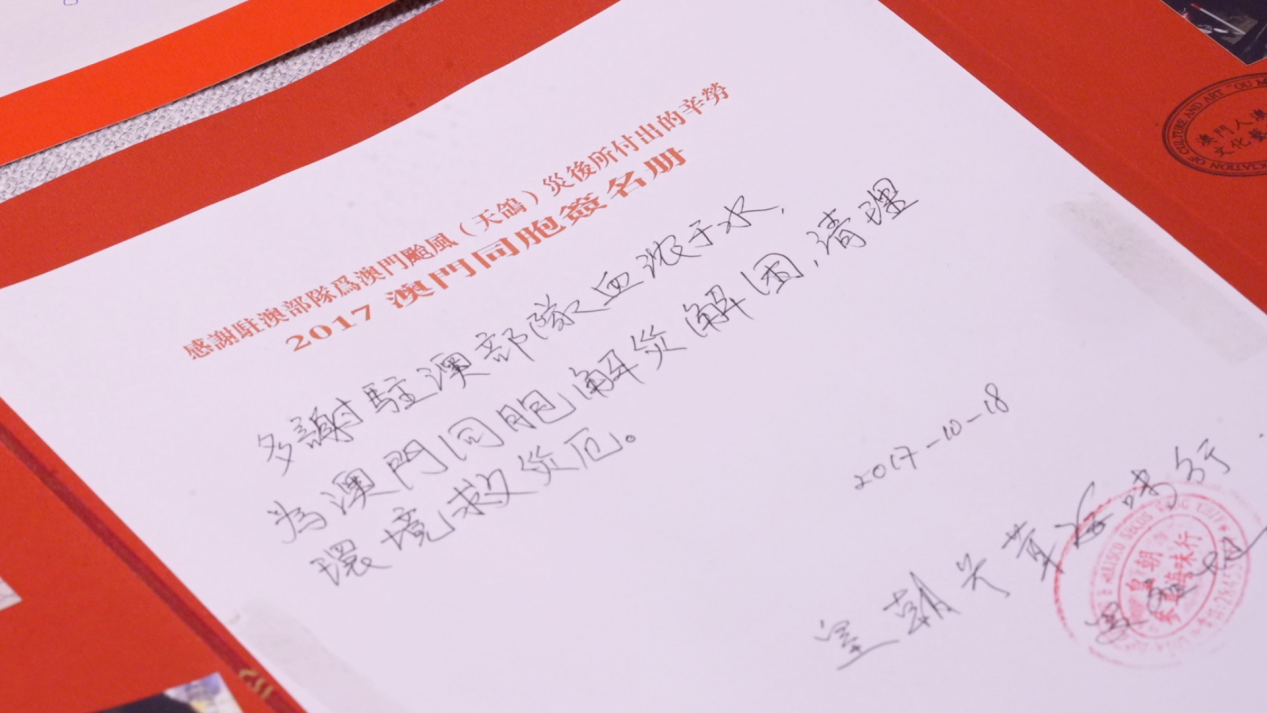 感謝駐澳部隊爲澳門颱風（天鴿）災後所付出的辛勞
2017 澳門同胞簽名册
多謝駐澳部隊血浓于水,
為澳門同胞解災解困,清理
環境救災厄。
2017-10-18
皇朝參茸海味行
皇朝
參茸海味行
CULTURE AND ART
澳門人
文化藝